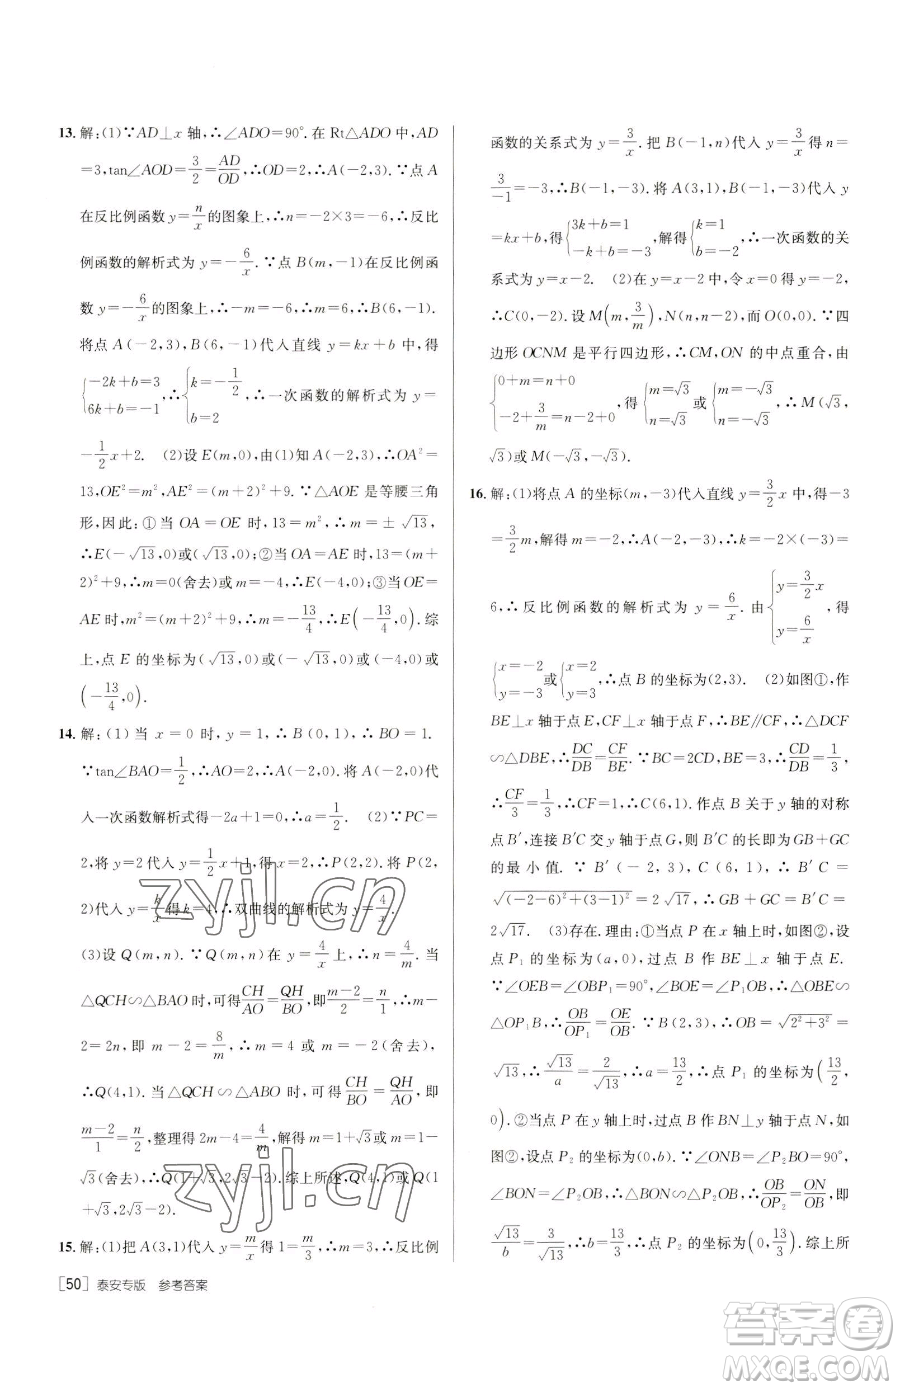 13. 解:(1)∵AD⊥x 轴,∴∠ADO=90°. 在 Rt△ADO 中,AD
=3,tan∠AOD=3/2=AD/OD,∴OD=2,∴A(-2,3). ∵点 A
在反比例函数 y=n/x 的图象上,∴n=-2×3=-6,∴反比
例函数的解析式为 y=-6/x. ∵点 B(m,-1)在反比例函
数 y=-6/x 的图象上,∴-m=-6,∴m=6,∴B(6,-1).
将点 A(-2,3),B(6,-1)代入直线 y=kx+b 中,得
{-2k+b=3, 6k+b=-1,∴{k=-1/2, b=2,∴一次函数的解析式为 y=
-1/2x+2. (2)设 E(m,0),由(1)知,A(-2,3),∴OA²=
13,OE²=m²,AE²=(m+2)²+9. ∵△AOE 是等腰三角
形,因此:①当 OA=OE 时,13=m²,∴m=±√13,
∴E(-√13,0)或(√13,0);②当 OA=AE 时,13=(m+
2)²+9,∴m=0(舍去)或 m=-4,∴E(-4,0);③当 OE=
AE 时,m²=(m+2)²+9,∴m=-13/4,∴E(-13/4,0). 综
上,点 E 的坐标为(√13,0)或(-√13,0)或(-4,0)或
(-13/4,0).
14. 解:(1)当 x=0 时,y=1,∴B(0,1),∴BO=1.
∵tan∠BAO=1/2,∴AO=2,∴A(-2,0). 将 A(-2,0)代
入一次函数解析式得-2a+1=0,∴a=1/2. (2)∵PC=
2,将 y=2 代入 y=1/2x+1,得 x=2,∴P(2,2). 将 P(2,
2)代入 y=k/x 得 k=4,∴双曲线的解析式为 y=4/x.
(3)设 Q(m,n). ∵Q(m,n)在 y=4/x 上,∴n=4/m. 当
△QCH∽△BAO 时,可得CH/AO=QH/BO,即m-2/2=n/1,∴m-
2=2n,即 m-2=8/m,∴m=4 或 m=-2(舍去),
∴Q(4,1). 当△QCH∽△ABO 时,可得CH/BO=QH/AO,即
m-2/1=n/2,整理得 2m-4=4/m,解得 m=1+√3或 m=1-
√3(舍去),∴Q(1+√3,2√3-2). 综上所述,Q(4,1)或 Q(1
+√3,2√3-2).
15. 解:(1)把 A(3,1)代入 y=m/x 得 1=m/3,∴m=3,∴反比例
[50] 泰安专版 参考答案
函数的关系式为 y=3/x. 把 B(-1,n)代入 y=3/x 得 n=
3/-1=-3,∴B(-1,-3). 将 A(3,1),B(-1,-3)代入 y
=kx+b,得{3k+b=1, -k+b=-3,解得{k=1, b=-2,∴一次函数的关
系式为 y=x-2. (2)在 y=x-2 中,令 x=0 得 y=-2,
∴C(0,-2). 设 M(m,3/m),N(n,n-2),而 O(0,0). ∵四
边形 OCNM 是平行四边形,∴CM,ON 的中点重合,由
{0+m=n+0, -2+3/m=n-2+0,得{m=√3, n=√3或{m=-√3, n=-√3,∴M(√3,
√3)或 M(-√3,-√3).
16. 解:(1)将点 A 的坐标(m,-3)代入直线 y=3/2x 中,得-3
=3/2m,解得 m=-2,∴A(-2,-3),∴k=-2×(-3)=
6,∴反比例函数的解析式为 y=6/x. 由{y=3/2x, y=6/x,得
{x=-2, y=-3或{x=2, y=3,∴点 B 的坐标为(2,3). (2)如图①,作
BE⊥x 轴于点 E,CF⊥x 轴于点 F,∴BE∥CF,∴△DCF
∽△DBE,∴DC/DB=CF/BE. ∵BC=2CD,BE=3,∴CD/DB=1/3,
∴CF/3=1/3,∴CF=1,∴C(6,1). 作点 B 关于 y 轴的对称
点 B′,连接 B′C 交 y 轴于点 G,则 B′C 的长即为 GB+GC
的最小值. ∵B′(-2,3),C(6,1),∴B′C=
√(-2-6)²+(3-1)²=2√17,∴GB+GC=B′C=
2√17. (3)存在. 理由:①当点 P 在 x 轴上时,如图②,
设点 P₁ 的坐标为(a,0),过点 B 作 BE⊥x 轴于点 E.
∵∠OEB=∠OBP₁=90°,∠BOE=∠P₁OB,∴△OBE∽
△OP₁B,∴OB/OP₁=OE/OB. ∵B(2,3),∴OB=√2²+3²=
√13,∴√13/a=2/√13,∴a=13/2,∴点 P₁ 的坐标为(13/2,
0). ②当点 P 在 y 轴上时,过点 B 作 BN⊥y 轴于点 N,如
图②,设点 P₂ 的坐标为(0,b). ∵∠ONB=∠P₂BO=90°,
∠BON=∠P₂OB,∴△BON∽△P₂OB,∴OB/OP₂=ON/OB,即
√13/b=3/√13,∴b=13/3,∴点 P₂ 的坐标为(0,13/3). 综上所
zyjl.cn
zyjl.cn
答案圈
MXQE.COM